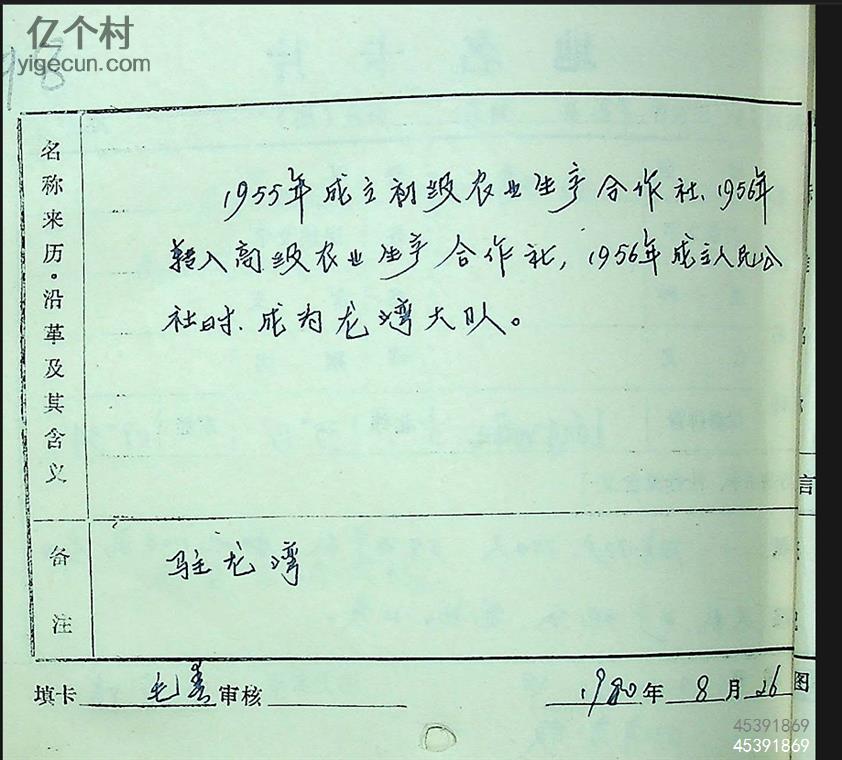 亿个村
yigecun.com
98
名称来历。沿革及其含义
1955年成立初级农业生产合作社、1956年
转入高级农业生产合作社，1956年成立人民公
社时、成为龙湾大队。
备注
驻龙湾
填卡 毛 审核
1980年8月26
图
言
45391869
45391869